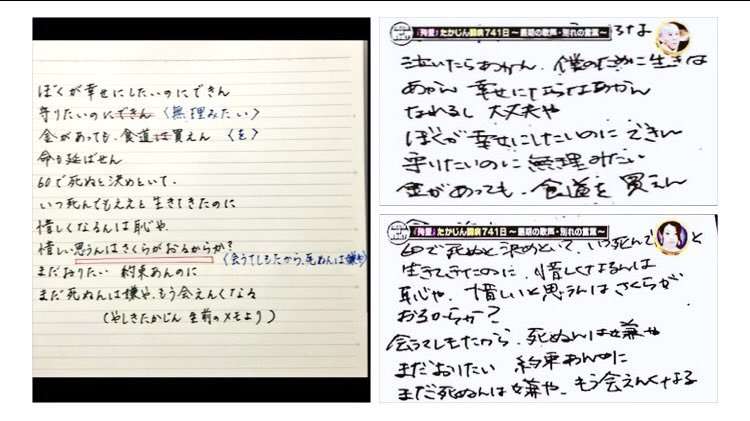 ぼくが幸せにしたいのにできん
守りたいのにできん 〈無理みたい〉
金があっても、食道は買えん 〈を〉
命も延ばせん
60で死ぬと決めといて、
いつ死んでもええと生きてきたのに
惜しくなるんは恥や、
惜しい思うんはさくらがおるからか?
〈会うてしもたから、死ぬんは嫌や〉
まだおりたい 約束あんのに
まだ死ぬんは嫌や、もう会えんくなる
(やしきたかじん 生前のメモより)
『殉愛』たかじん闘病741日～最期の歌声・別れの言葉～
泣いたらあかん、僕のために生きな
あかん 幸せにならなあかん
なれるし 大丈夫や
ぼくが幸せにしたいのに できん
守りたいのに 無理みたい
金があっても、食道を 買えん
『殉愛』たかじん闘病741日～最期の歌声・別れの言葉～
60で死ぬと決めといて、いつ死んで と
生きてきたのに、惜しくなるんは
恥や、惜しいと思うんはさくらが
おるからか?
会うてしもたから、死ぬんは嫌や
まだおりたい 約束あんのに
まだ死ぬんは嫌や、もう会えんくなる